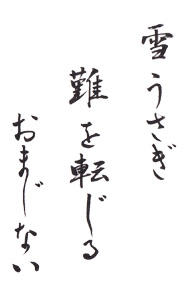 雪うさぎ
難を転じる
おまじない